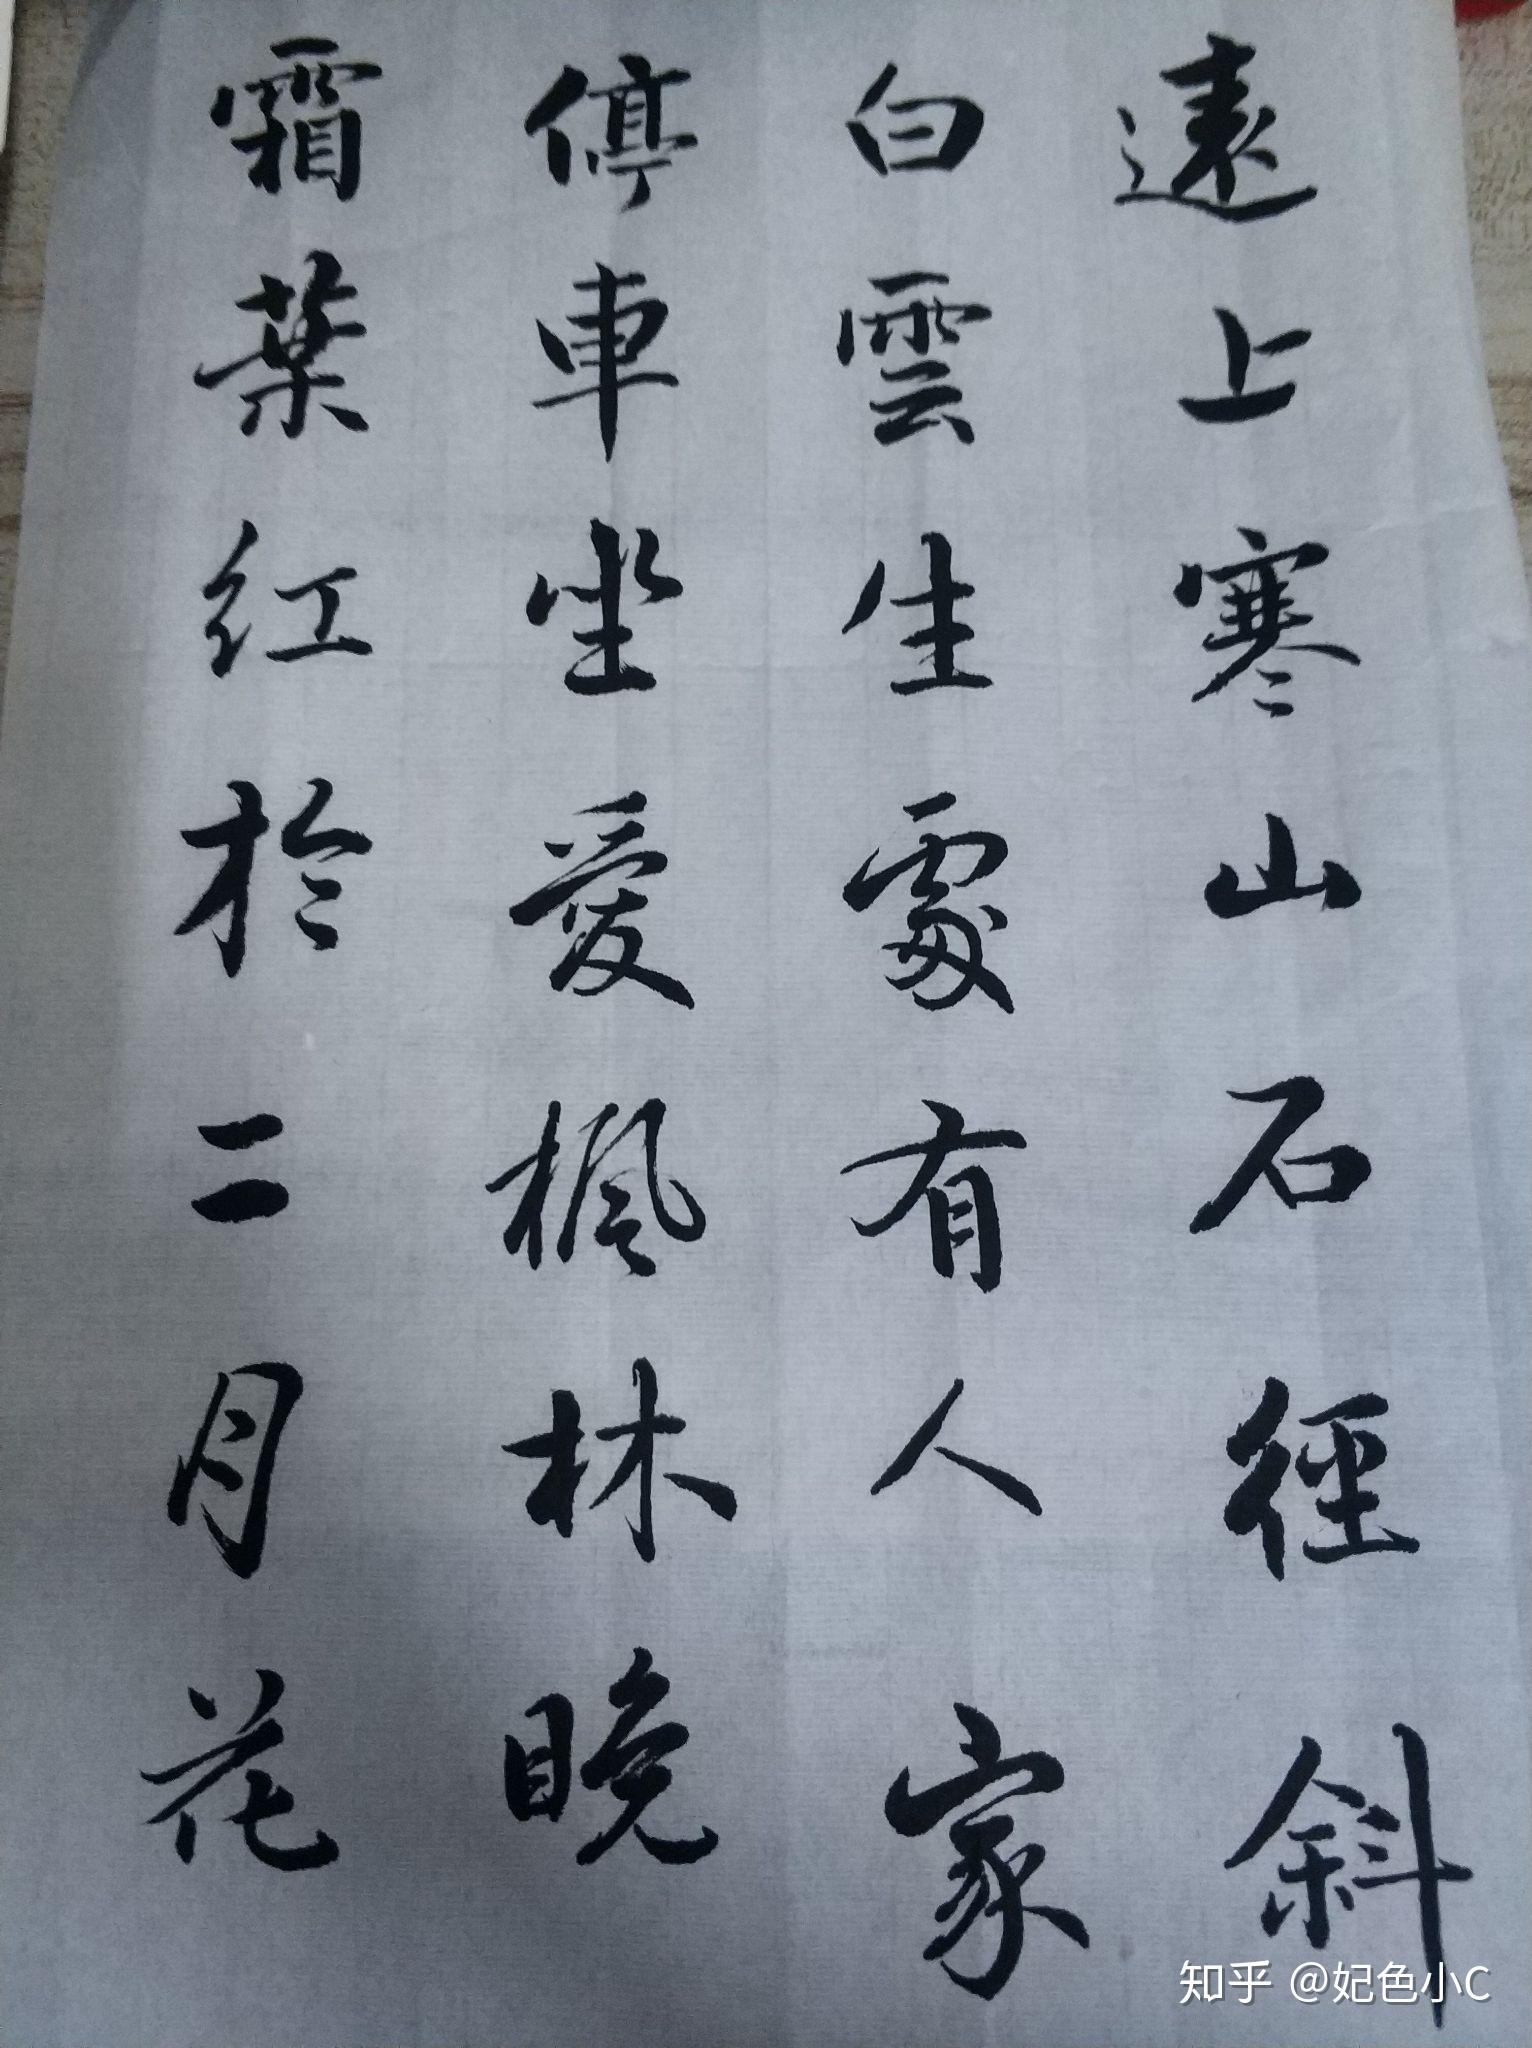 遠上寒山石徑斜
白雲生處有人家
停車坐愛楓林晚
霜葉红於二月花
知乎 @妃色小C